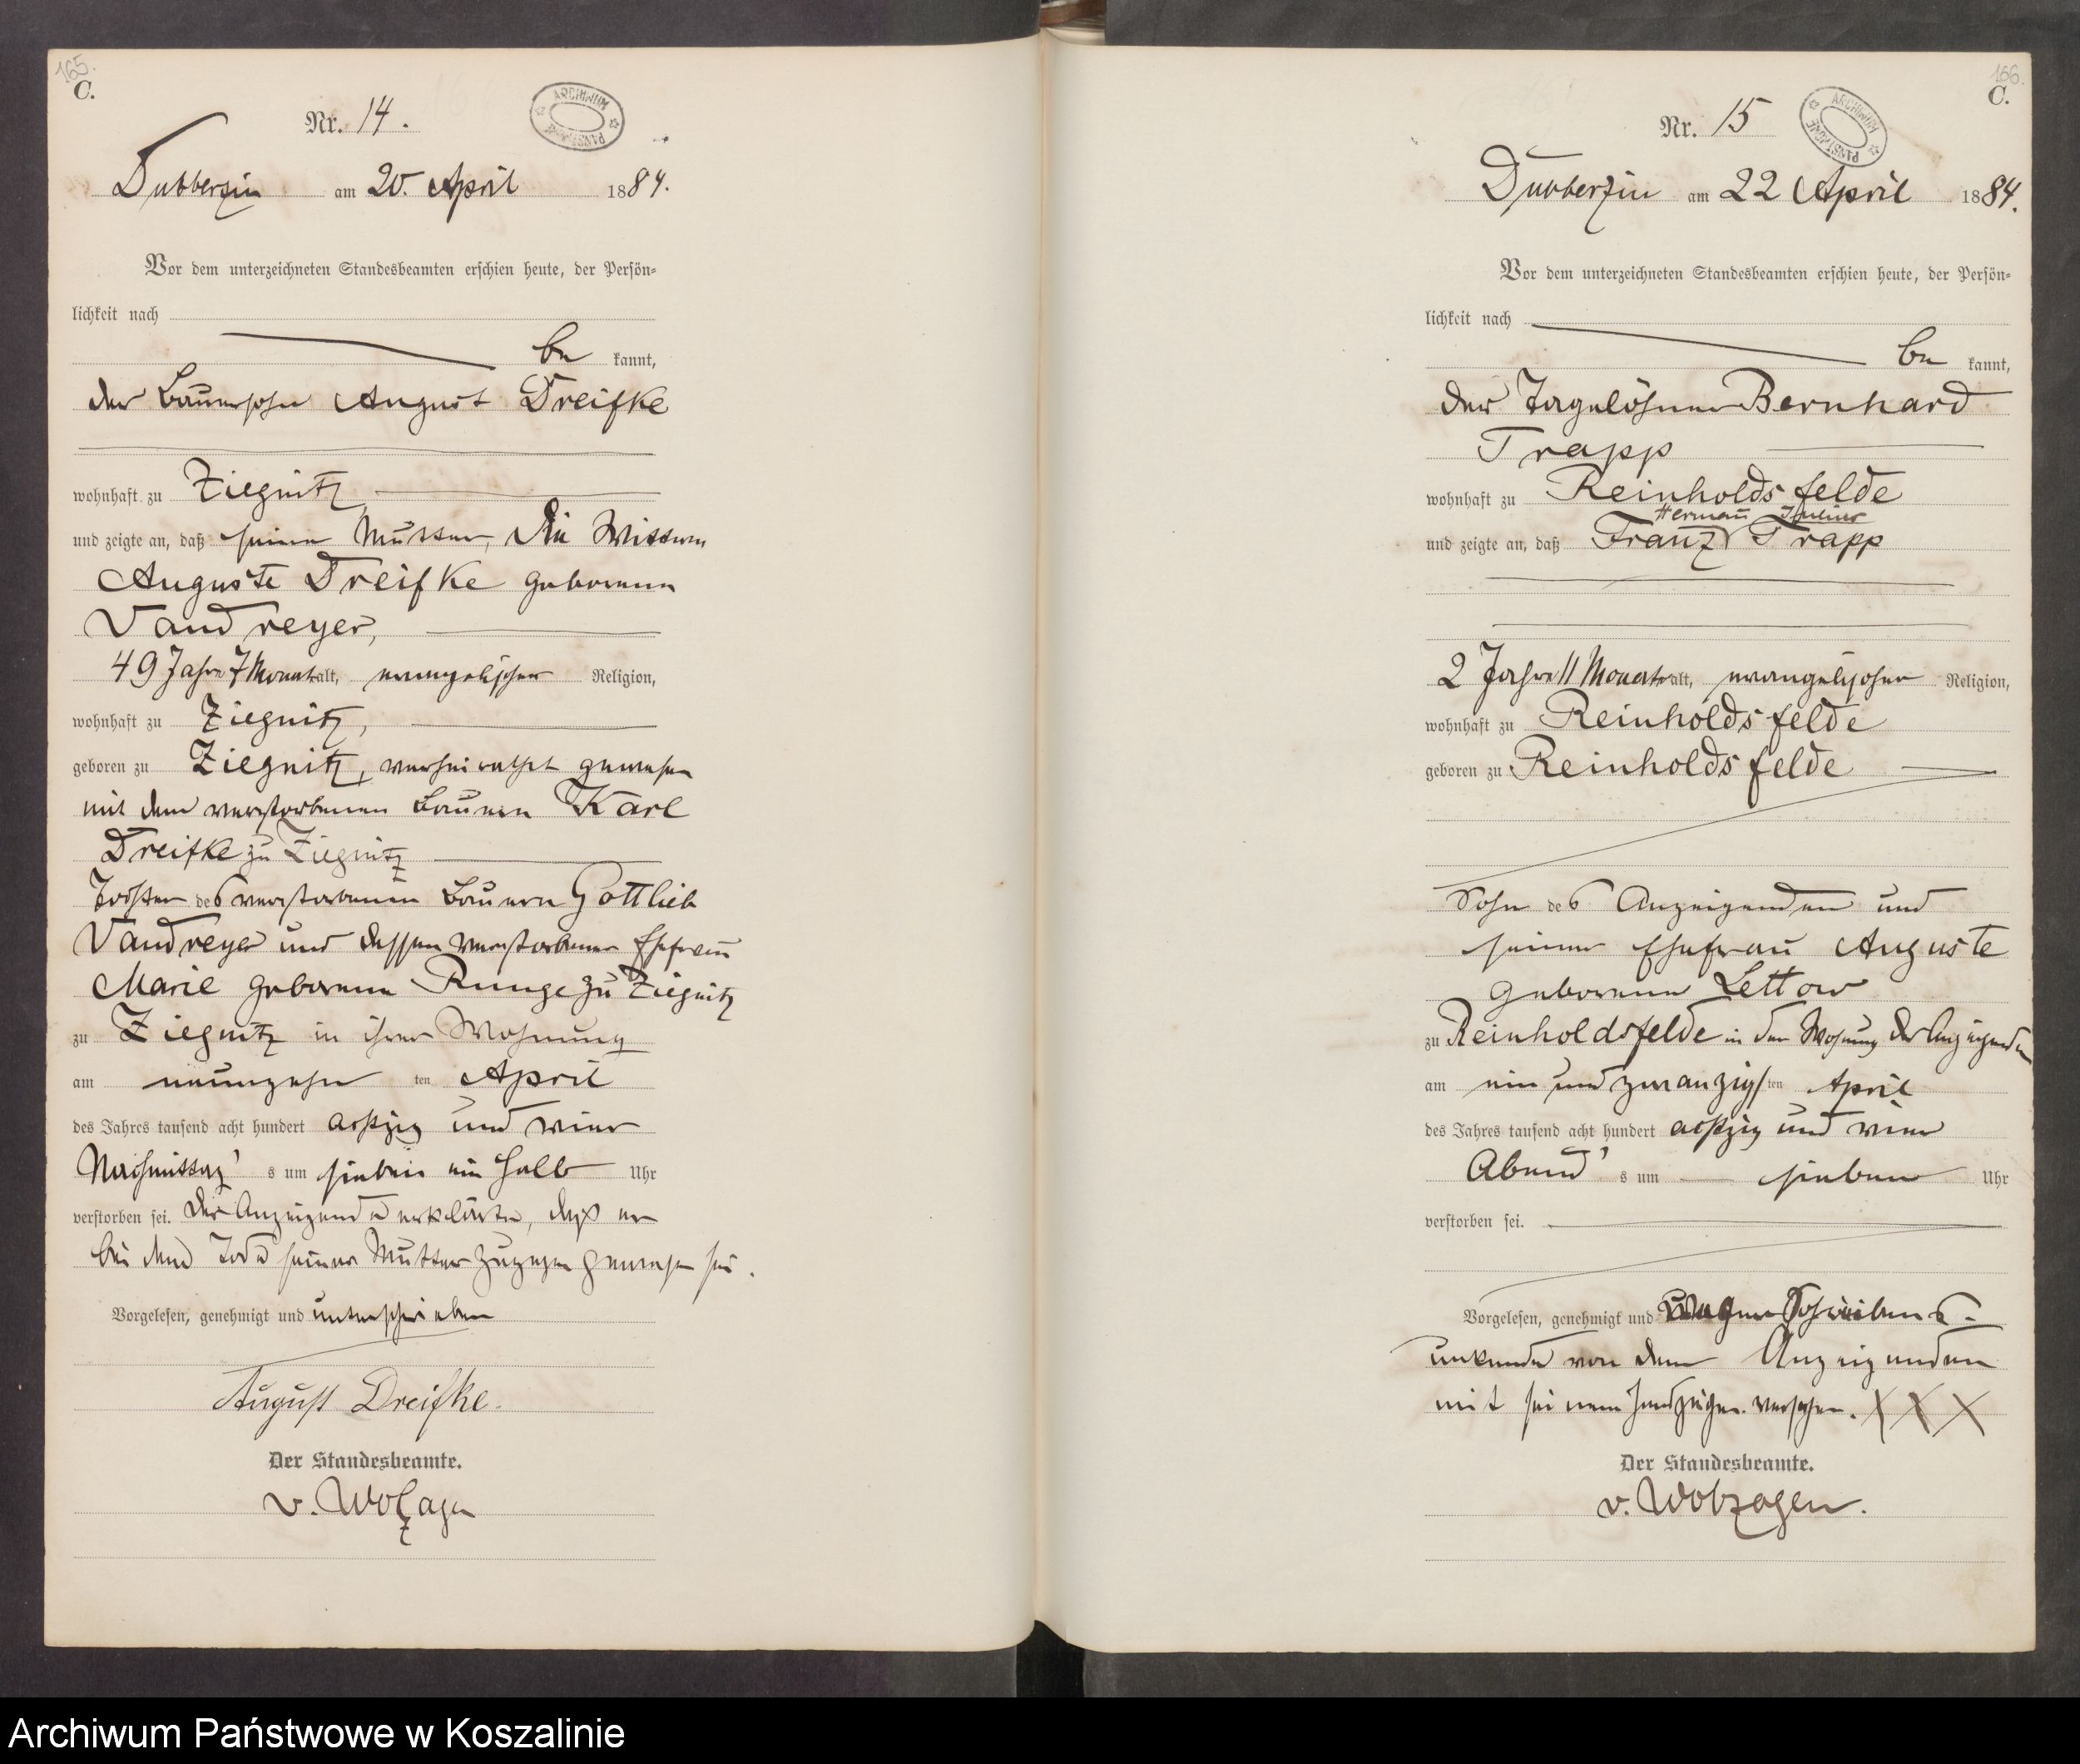 165.
C.
Nr. 14.
ARCHIWUM PAŃSTWOWE
Dubberzin am 20. April 1884.
Vor dem unterzeichneten Standesbeamten erschien heute, der Persön-
lichkeit nach
be kannt,
der Bauersohn August Dreifke
wohnhaft zu Ziegnitz
und zeigte an, daß seine Mutter, die Wittwe
Auguste Dreifke geborene
Vandreyer,
49 Jahre 7 Monat alt, evangelischer Religion,
wohnhaft zu Ziegnitz,
geboren zu Ziegnitz, verheirathet gewesen
mit dem verstorbenen Bauern Karl
Dreifke zu Ziegnitz
Tochter des verstorbenen Bauern Gottlieb
Vandreyer und dessen verstorbener Ehefrau
Marie geborene Runge zu Ziegnitz
zu Ziegnitz in ihrer Wohnung
am neunzehn ten April
des Jahres tausend acht hundert achtzig und vier
Nachmittag's um sieben ein halb Uhr
verstorben sei. Der Anzeigende erklärte, daß er
bei dem Tode seiner Mutter zugegen gewesen sei.
Vorgelesen, genehmigt und unterschrieben
August Dreifke.
Der Standesbeamte.
166.
C.
Nr. 15
ARCHIWUM PAŃSTWOWE
Dubberzin am 22 April 1884.
Vor dem unterzeichneten Standesbeamten erschien heute, der Persön-
lichkeit nach
be kannt,
der Tagelöhner Bernhard
Trapp
wohnhaft zu Reinholdsfelde
Herman Julius
und zeigte an, daß Franz Trapp
2 Jahre 11 Monate alt, evangelischer Religion,
wohnhaft zu Reinholdsfelde
geboren zu Reinholdsfelde
Sohn des Anzeigenden und
seiner Ehefrau Auguste
geborene Lettow
zu Reinholdsfelde in der Wohnung des Anzeigenden
am ein und zwanzigsten April
des Jahres tausend acht hundert achtzig und vier
Abend's um sieben Uhr
verstorben sei.
Vorgelesen, genehmigt und wegen Schreibens-
unkunde von dem Anzeigenden
mit seinem Handzeichen versehen. XXX
Der Standesbeamte.
Archiwum Państwowe w Koszalinie